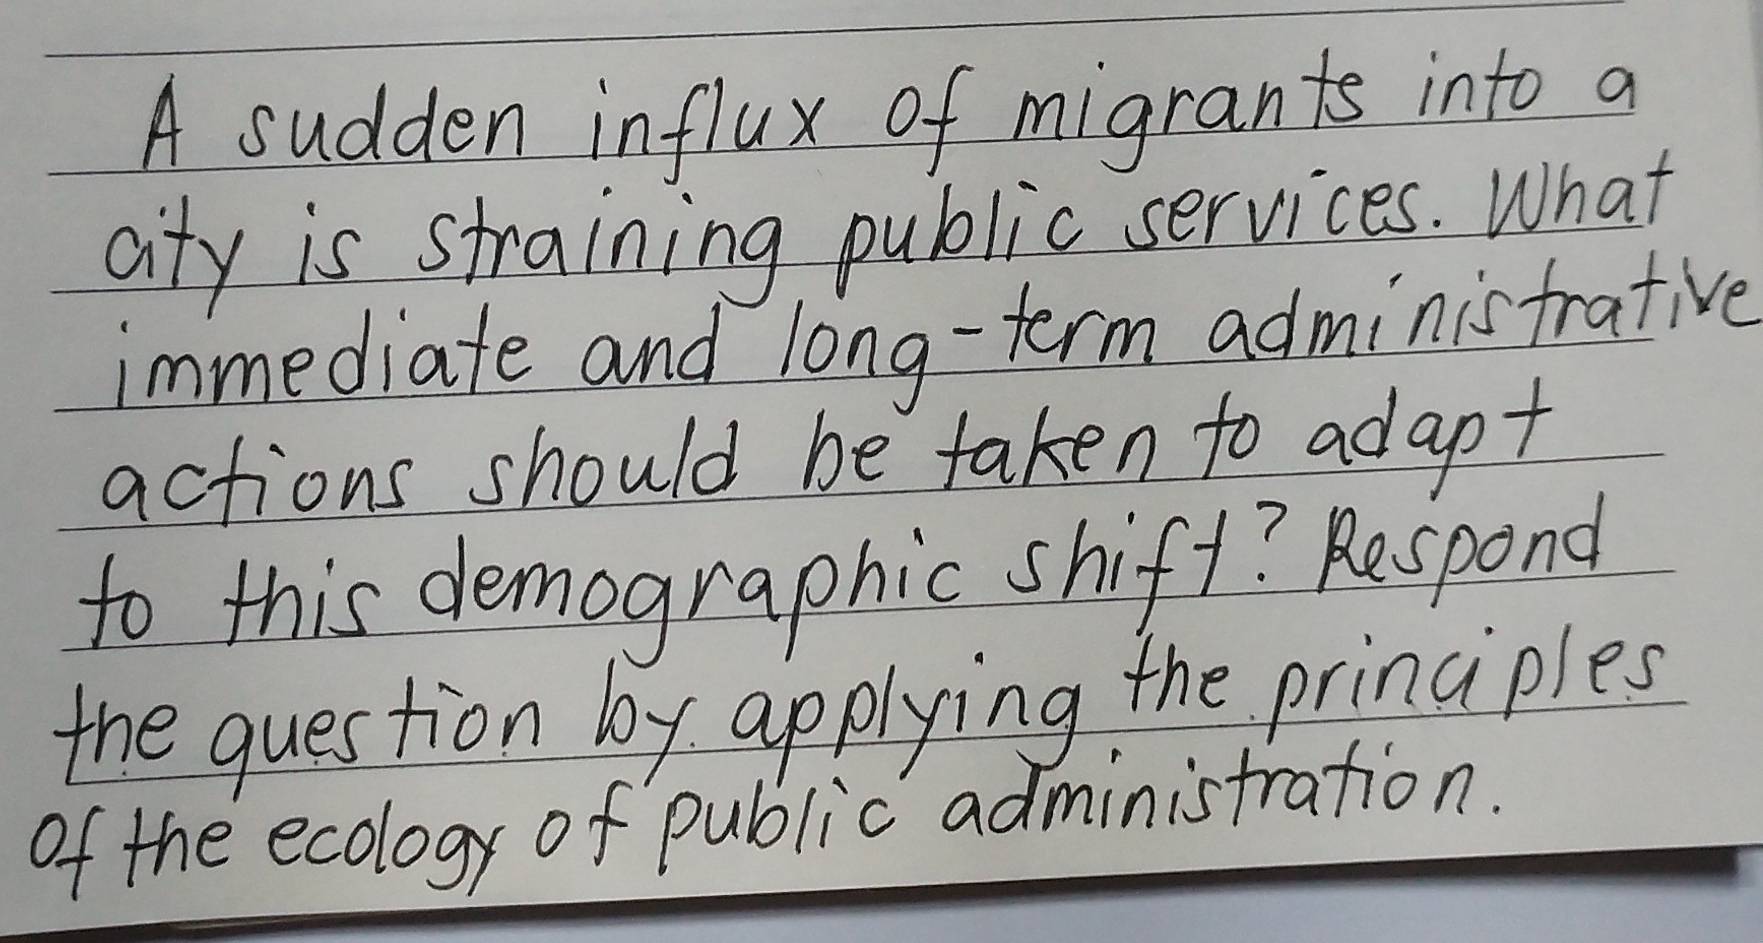 A sudden influx of migrants into a
city is straining public services. What
immediate and long-term administrative
actions should be taken to adapt
to this demographic shift? Respond
the question by applying the principles
of the ecology of public administration.